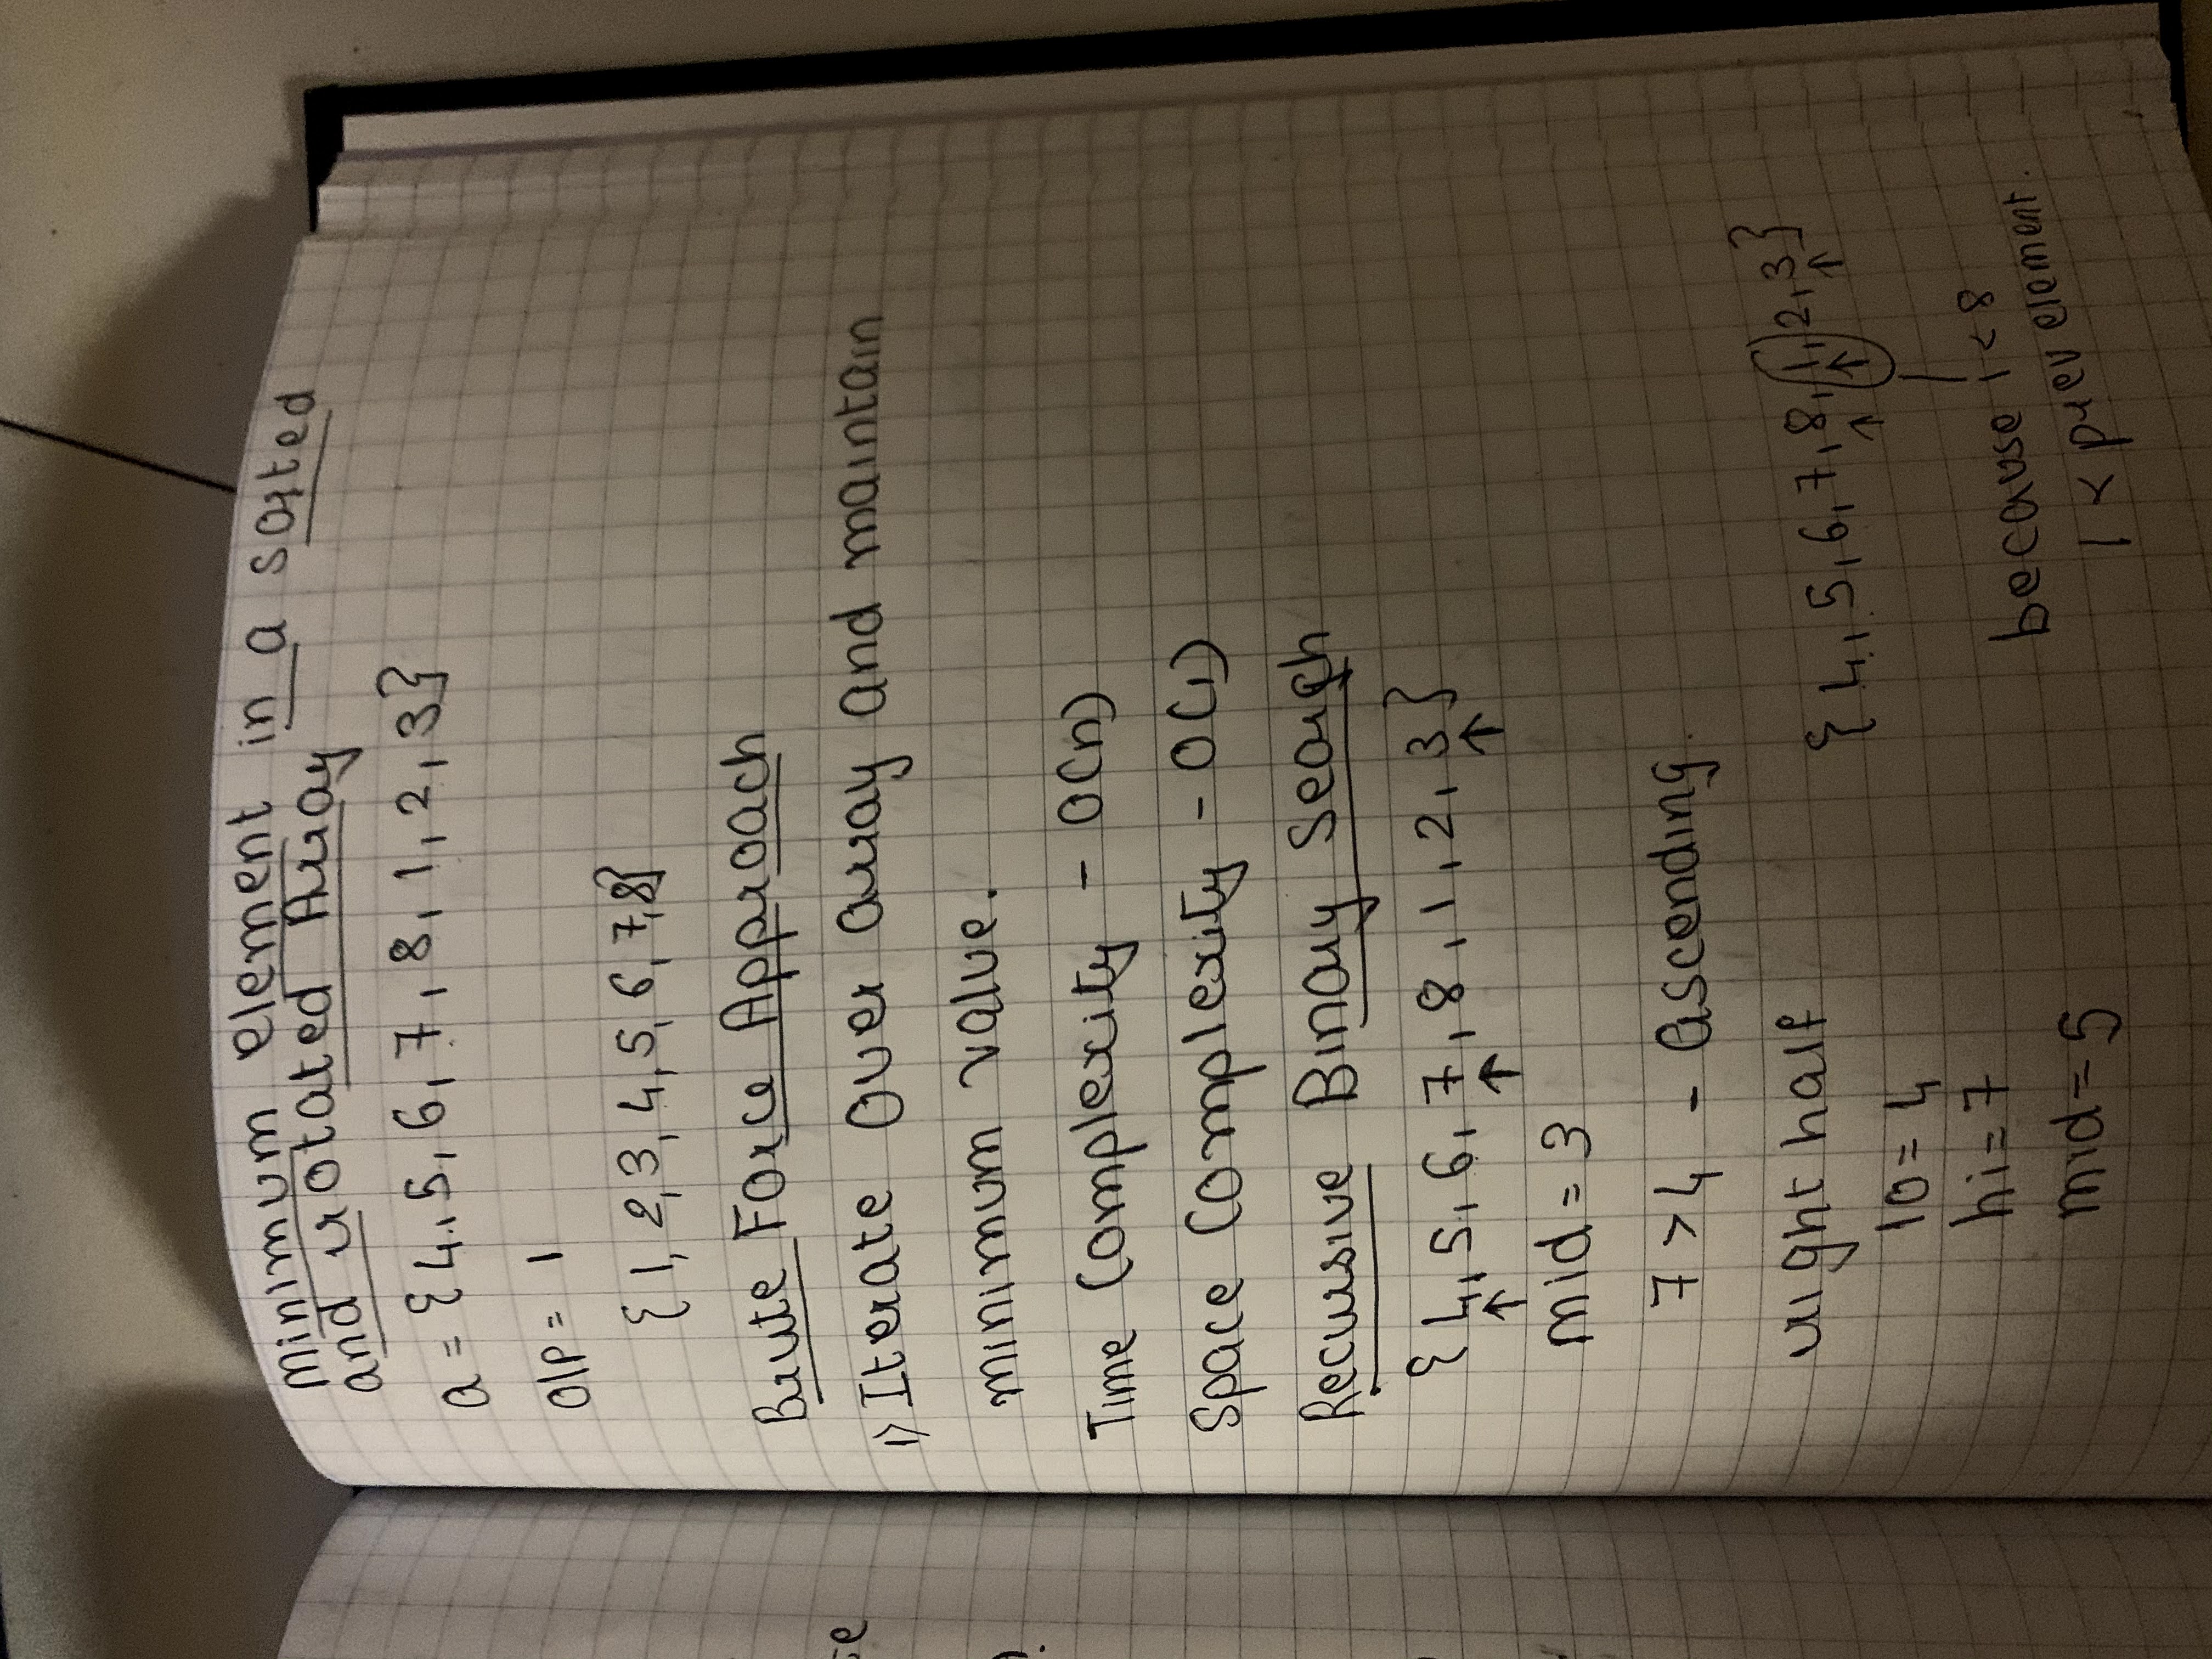 Minimum element in a sorted
and rotated Array
a = {4, 5, 6, 7, 8, 1, 2, 3}
O/P = 1
{1, 2, 3, 4, 5, 6, 7, 8}
Brute Force Approach
1) Iterate over array and maintain
minimum value.
Time Complexity - O(n)
Space Complexity - O(1)
Recursive Binary Search
{4, 5, 6, 7, 8, 1, 2, 3}
↑ ↑ ↑
mid = 3
7 > 4 - ascending.
right half
{4, 5, 6, 7, 8, 1, 2, 3}
↑ ↑ ↑
lo = 4
hi = 7
because 1 < 8
mid = 5
1 < prev element.